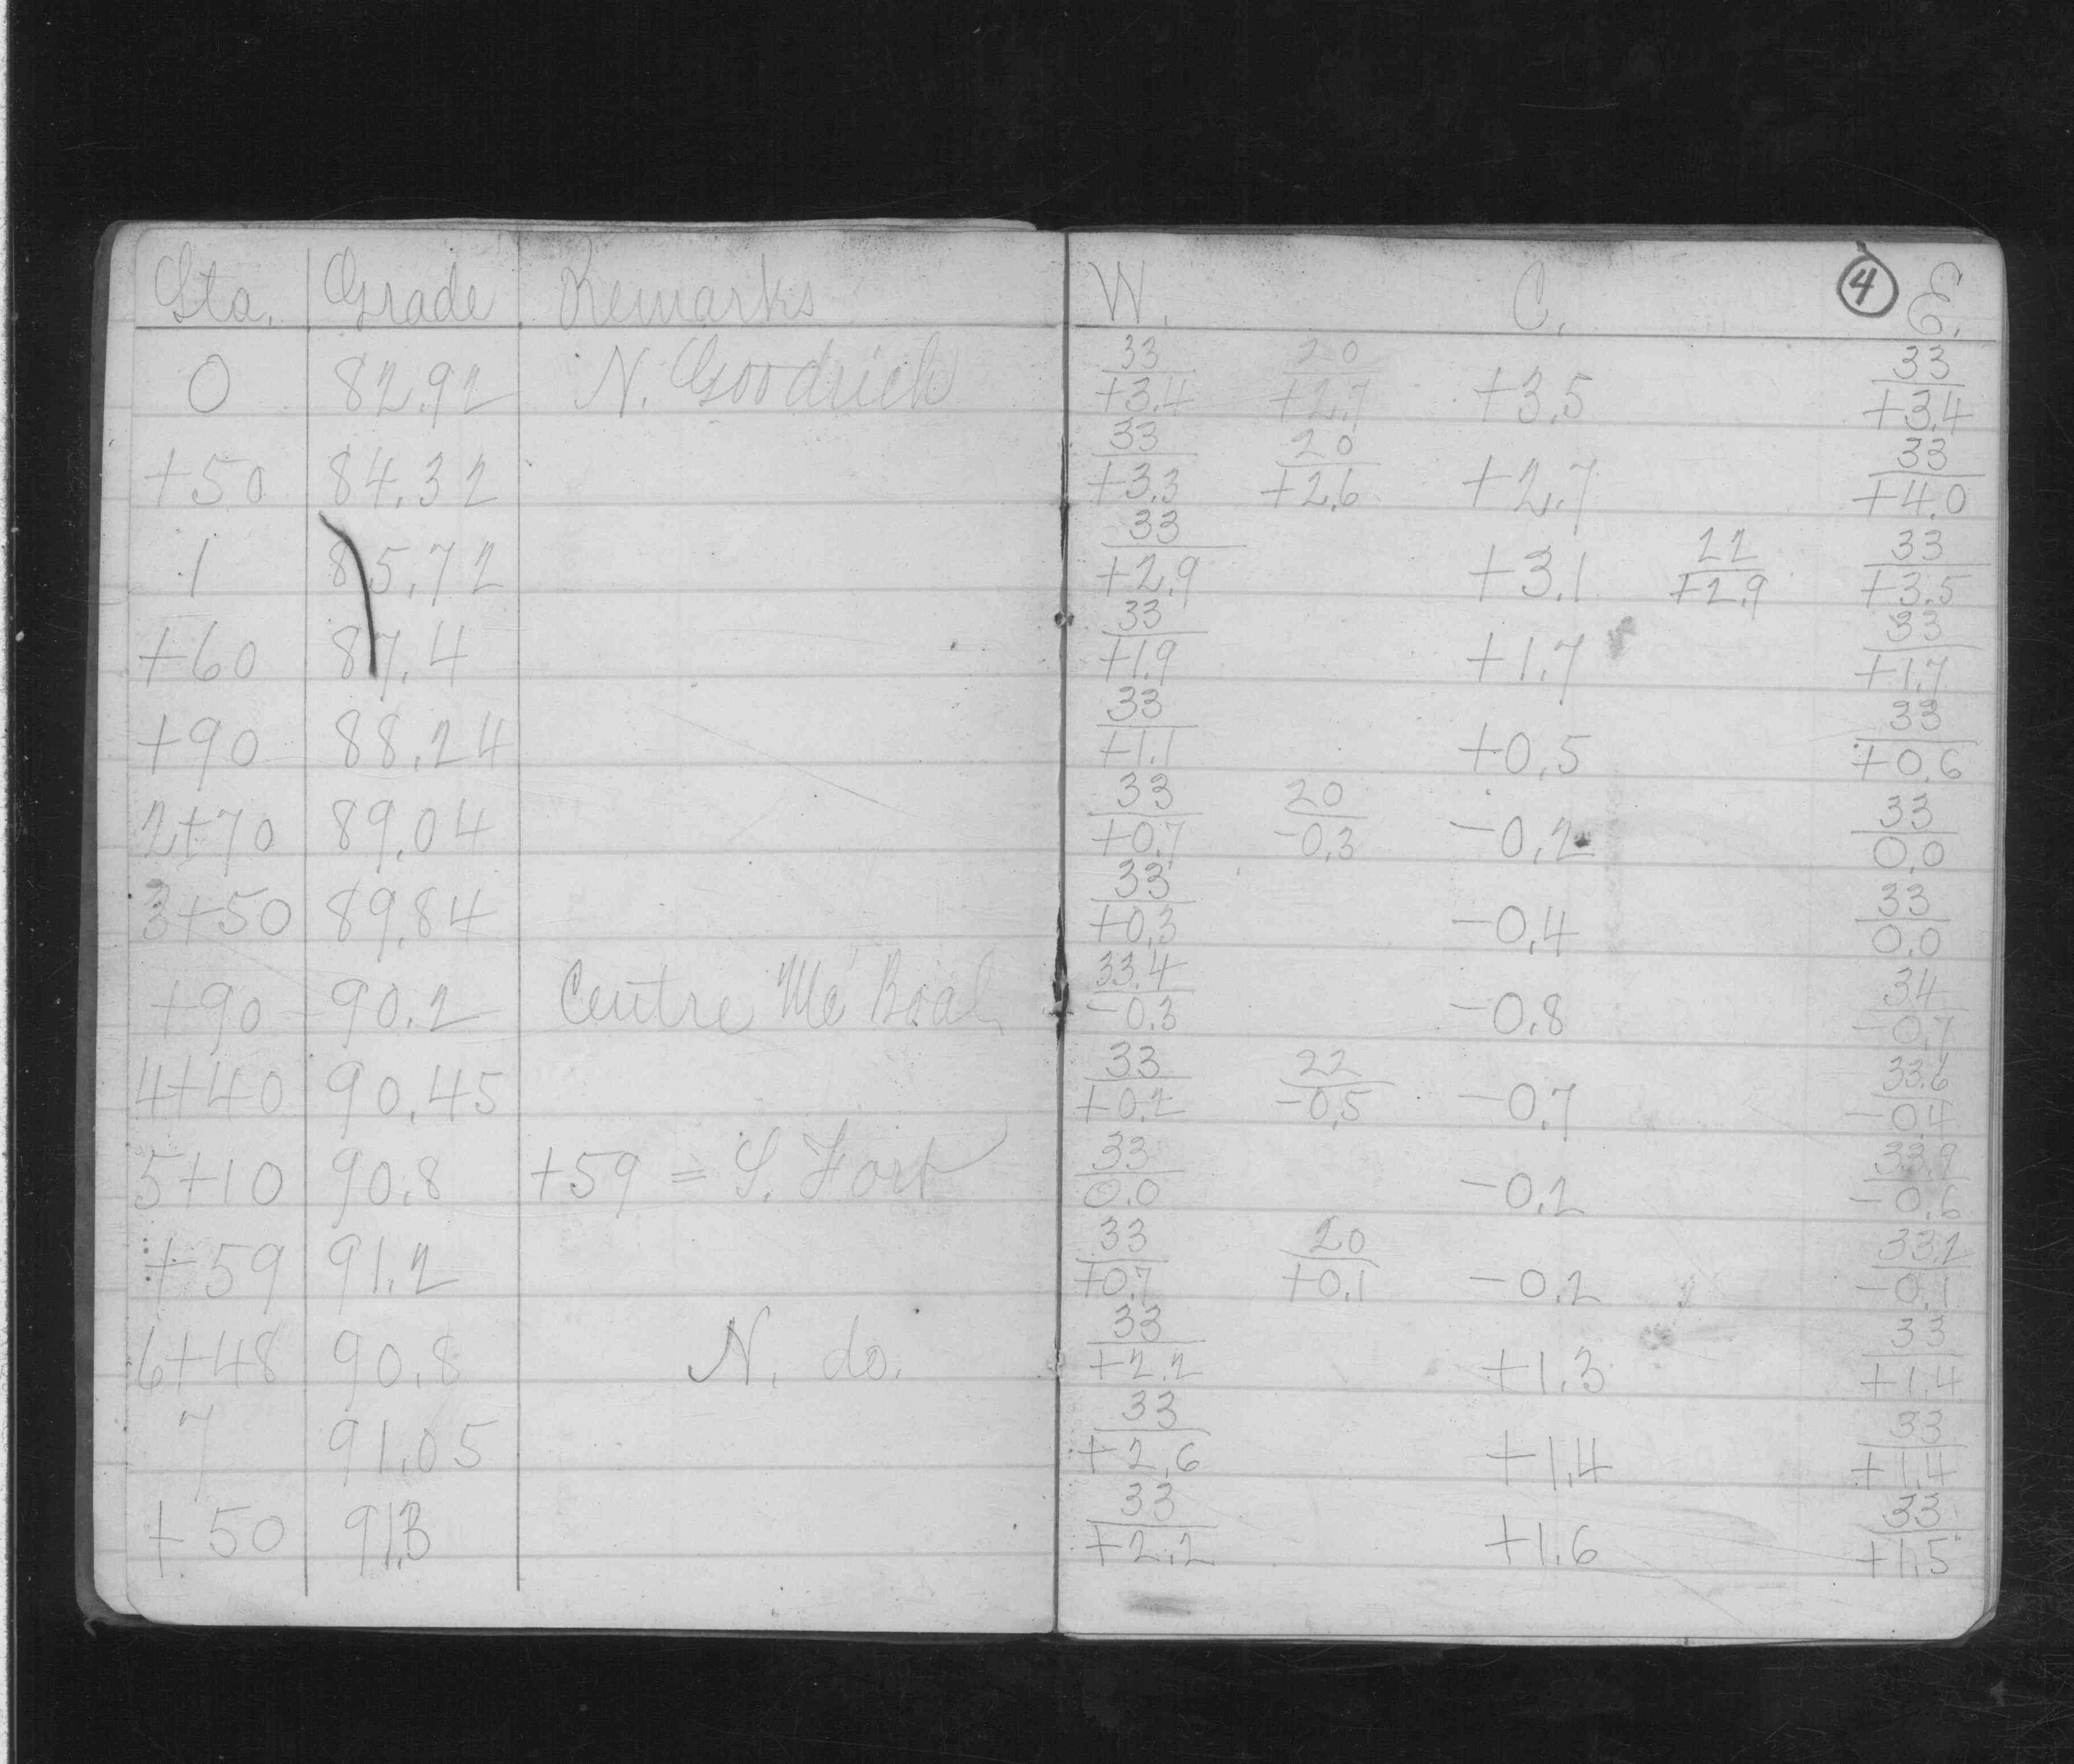 Sta. Grade Remarks W. C. 4 E.
0 82.92 N. Goodrich 33/+3.4 20/+2.7 +3.5 33/+3.4
+50 84.32 33/+3.3 20/+2.6 +2.7 33/+4.0
1 85.72 33/+2.9 +3.1 22/+2.9 33/+3.5
+60 87.4 33/+1.9 +1.7 33/+1.7
+90 88.24 33/+1.1 +0.5 33/+0.6
2+70 89.04 33/+0.7 20/-0.3 -0.2 33/0.0
3+50 89.84 33/+0.3 -0.4 33/0.0
+90 90.2 Centre Mc Boal 33.4/-0.3 -0.8 34/-0.7
4+40 90.45 33/+0.2 22/-0.5 -0.7 33.6/-0.4
5+10 90.8 +59 = S. Fort 33/0.0 -0.2 33.9/-0.6
+59 91.2 33/+0.7 20/+0.1 -0.2 33.2/-0.1
6+48 90.8 N. do. 33/+2.2 +1.3 33/+1.4
7 91.05 33/+2.6 +1.4 33/+1.4
+50 91.3 33/+2.2 +1.6 33/+1.5